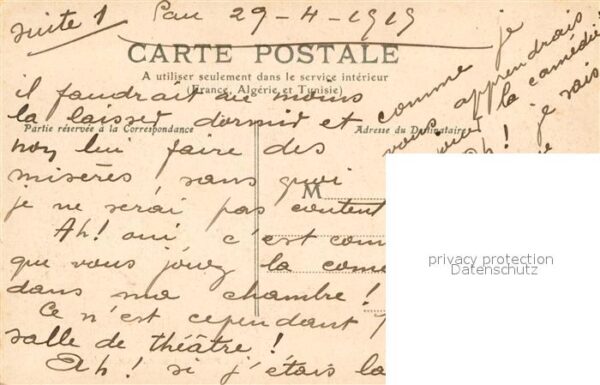 suite 1 Pau 29-4-1919
CARTE POSTALE
A utiliser seulement dans le service intérieur
(France, Algérie et Tunisie)
Partie réservée à la Correspondance
Adresse du Destinataire
M
il faudrait au moins
la laisser dormir et
non lui faire des
misères, sans quoi
je ne serai pas content
Ah! oui, c'est
que vous jouez la
dans ma chambre!
Ce n'est cependant
salle de théâtre!
Ah! si j'étais là
comme je
vous apprendrais
la comédie
Ah! je sais
privacy protection
Datenschutz